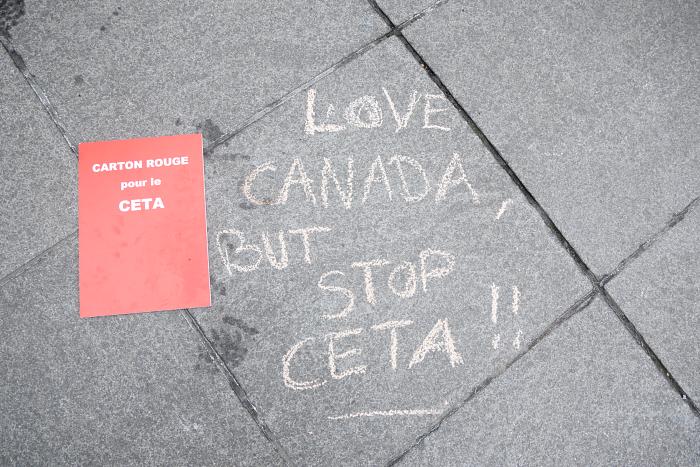 CARTON ROUGE
pour le
CETA
LOVE
CANADA,
BUT
STOP
CETA !!